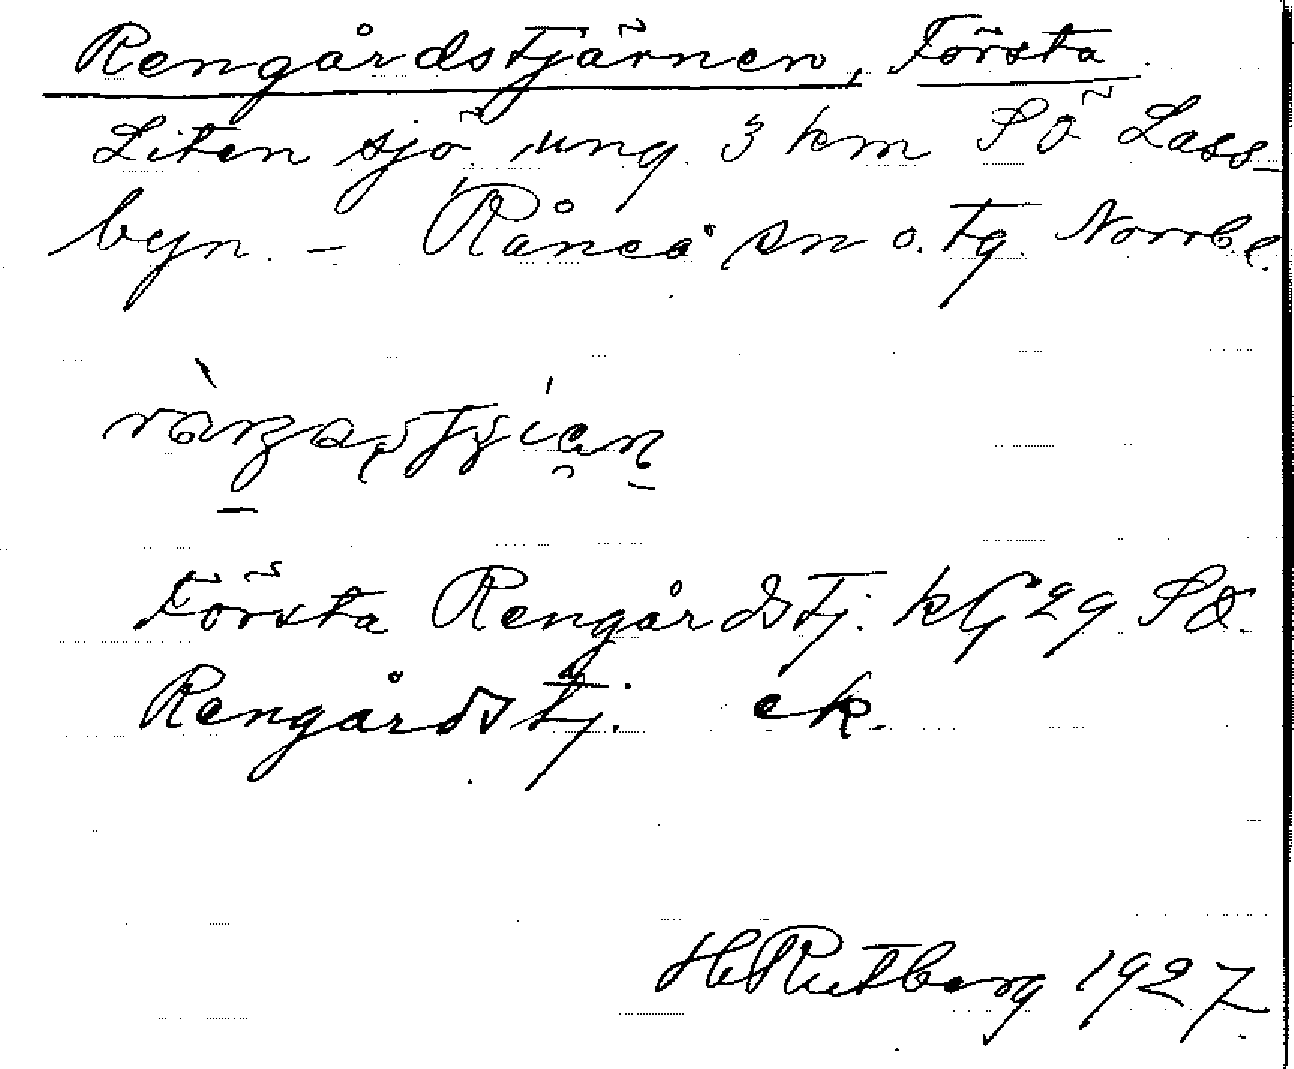 Rengårdstjärnen, Första
Liten sjö ung. 3 km SÖ Lass-
byn. – Råneå sn o. tg. Norrb. l.
Första Rengårdstj. kG 29 SÖ.
Rengårdstj. ek.
H Rutberg 1927